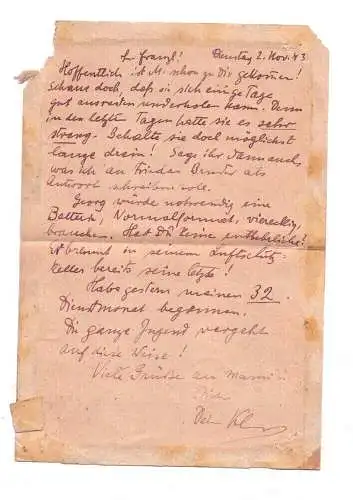 L. Franzl! Dienstag 2. Nov. 43
Hoffentlich ist M. schon zu Dir gekommen!
Schaue doch, daß sie sich einige Tage
gut ausreden und erholen kann. Denn
in den letzten Tagen hatte sie es sehr
streng. Schalte sie doch möglichst
lange drein! Sage ihr dann auch
was ich an Friedas Bruder als
Antwort schreiben soll.
Georg würde notwendig eine
Batterie, Normalformat, viereckig,
brauchen. Hat Du keine entbehrliche?
Er brennt in seinem Luftschutz-
keller bereits seine letzte!
Habe gestern meinen 32.
Dienstmonat begonnen.
Die ganze Jugend vergeht
auf diese Weise!
Viele Grüße an Mami
Dein